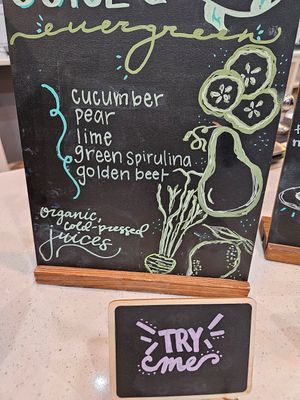 evergreen
cucumber
pear
lime
green spirulina
golden beet
organic,
cold-pressed
juices
TRY
me